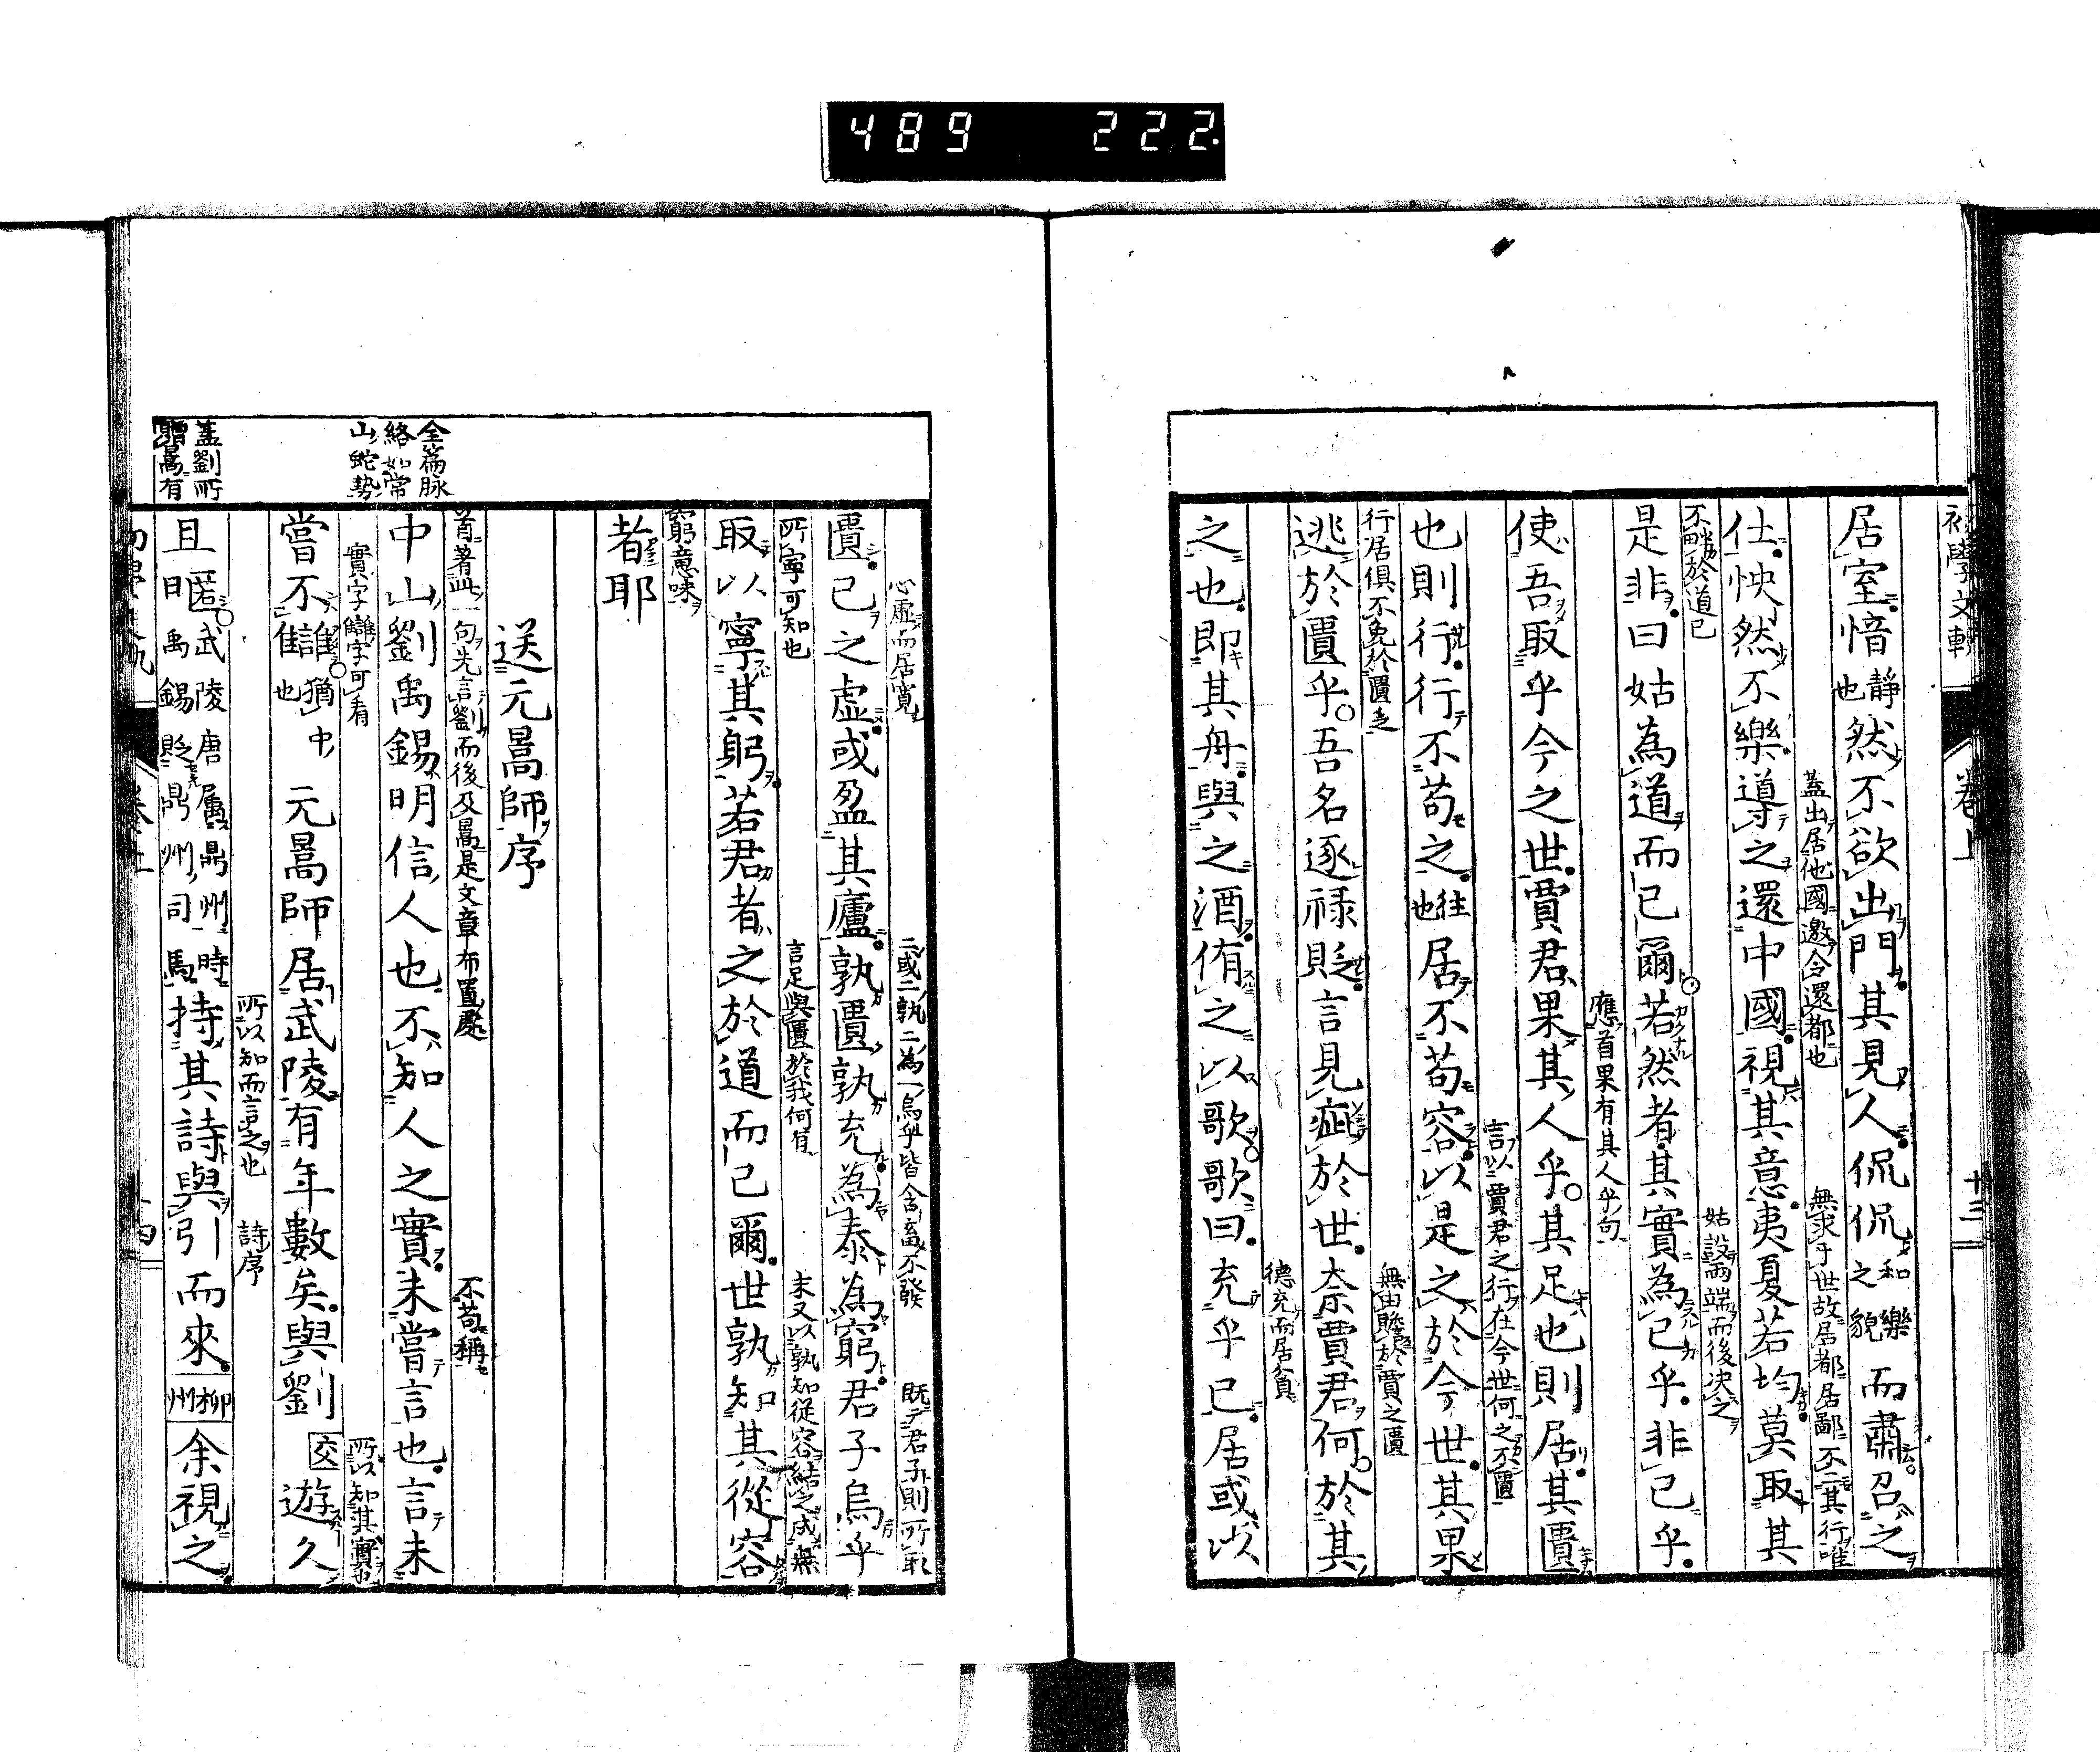 489 222
初學文軌 卷上 十三
居室愔靜也然不欲出門其見人侃侃和樂之貌而肅召之
蓋出居他國邀令還都也 無求于世故居都居鄙不一其行唯
仕怏然不樂導之還中國視其意夷夏若均莫取其
不畔於道已 姑設兩端而後决之
是非曰姑為道而已爾若然者其實為已乎非已乎
應首果有其人乎句
使吾取乎今之世賈君果其人乎其足也則居其匱
言以賈君之行在今世何之不匱
也則行行不苟之往也居不苟容以是之於今世其果
行居俱不免於匱乏 無由賑於賈之匱
逃於匱乎吾名逐祿貶言見疵於世奈賈君何於其
德充而居貧
之也即其舟與之酒侑之以歌歌曰充乎已居或以
心虛而居寬 二或二孰二為一烏乎皆含畜不發 既云君子則所取
匱已之虛或盈其廬孰匱孰充為泰為窮君子烏乎
所寧可知也 言足與匱於我何有 末又以孰知從容結之成無
取以寧其躬若君者之於道而已爾世孰知其從容
窮意味
者耶
送元暠師序
首著此一句先言劉而後及暠是文章布置處 不苟稱
全篇脉
絡如常
山蛇勢
中山劉禹錫明信人也不知人之實未嘗言也言未
實字讎字可看 所以知其實也
嘗不讎讎猶中也元暠師居武陵有年數矣與劉交遊久
所以知而言之也 詩序
蓋劉所
贈暠有
且暱武陵唐屬鼎州時禹錫貶鼎州司馬持其詩與引而來柳州余視之